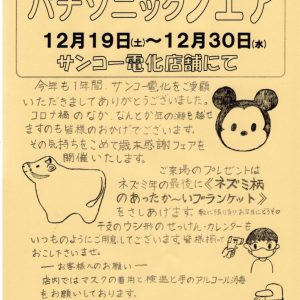 パナソニックフェア
12月19日(土)～12月30日(水)
サンコー電化店舗にて
今年も1年間、サンコー電化をご愛顧
いただきましてありがとうございました。
コロナ禍のなか、なんとか年の瀬を越せ
ますのも皆様のおかげでございます。
その気持ちをこめて歳末感謝フェアを
開催いたします。
ご来場のプレゼントは
ネズミ年の最後に《ネズミ柄
のあったか～いブランケット》
をさしあげます。
干支のウシ形のせっけん・カレンダーも
いつものようにご用意してございます。皆様揃って
お越し下さいませ。
―お客様へのお願い―
店内ではマスクの着用と検温と手のアルコール消毒
をお願いしております。